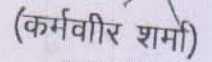 (कर्मवाीर शर्मा)